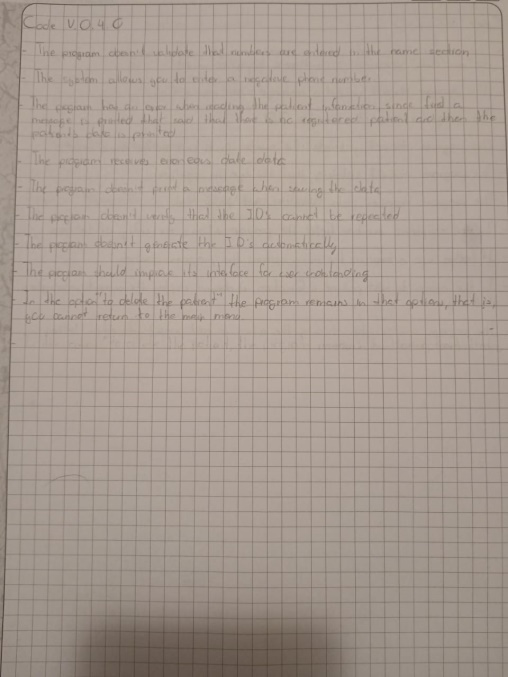 Code V.0.4.0
- The program doesn't validate that numbers are entered in the name section
- The system allows you to enter a negative phone number
- The program has an error when reading the patient information, since first a
message is printed that said that there is no registered patient and then the
patient's date is printed
- The program receives erroneous date date
- The program doesn't print a message when saving the date
- The program doesn't verify that the ID's cannot be repeated
- The program doesn't generate the ID's automatically
- The program should improve its interface for user
- In the option "to delete the patient" the program remains in that options, that is,
you cannot return to the main menu.